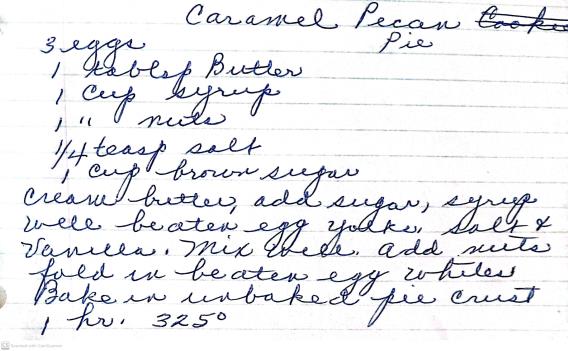 Caramel Pecan Cookie
Pie
3 eggs
1 tablsp Butter
1 Cup syrup
1 " nuts
1/4 teasp salt
1 cup brown sugar
Cream butter, add sugar, syrup
well beaten egg yolks. Salt &
Vanilla. Mix well. add nuts
fold in beaten egg whites
Bake in unbaked pie crust
1 hr. 325°